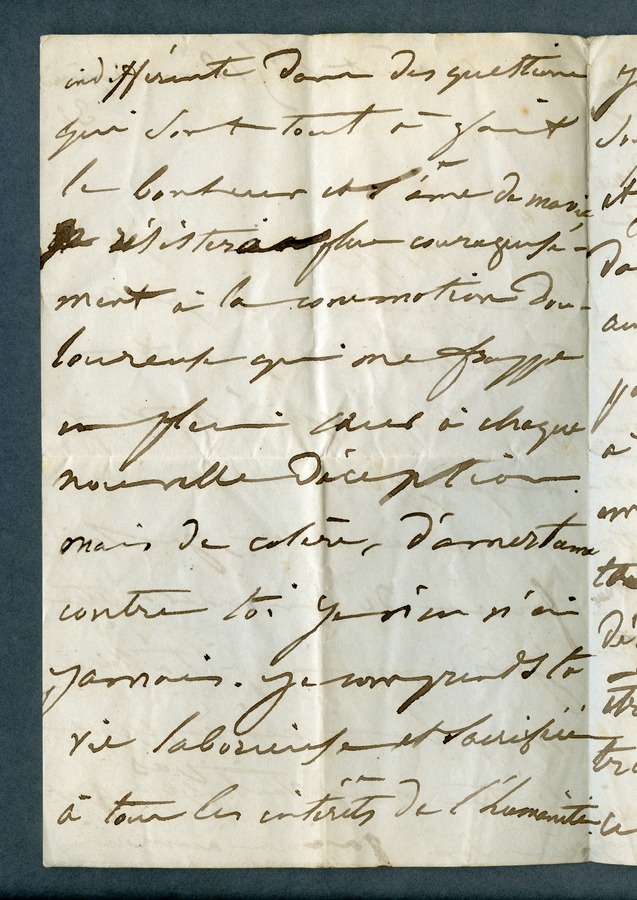 indifférente dans des questions
qui sont tout à fait
le bonheur et l'âme de ma vie
je résisterais plus courageuse-
ment à la commotion dou-
loureuse qui me frappe
en plein cœur à chaque
nouvelle déception.
mais de colère, d'amertume
contre toi je n'en n'ai
jamais. je comprends ta
vie laborieuse et sacrifiée
à tous les intérêts de l'humanité.